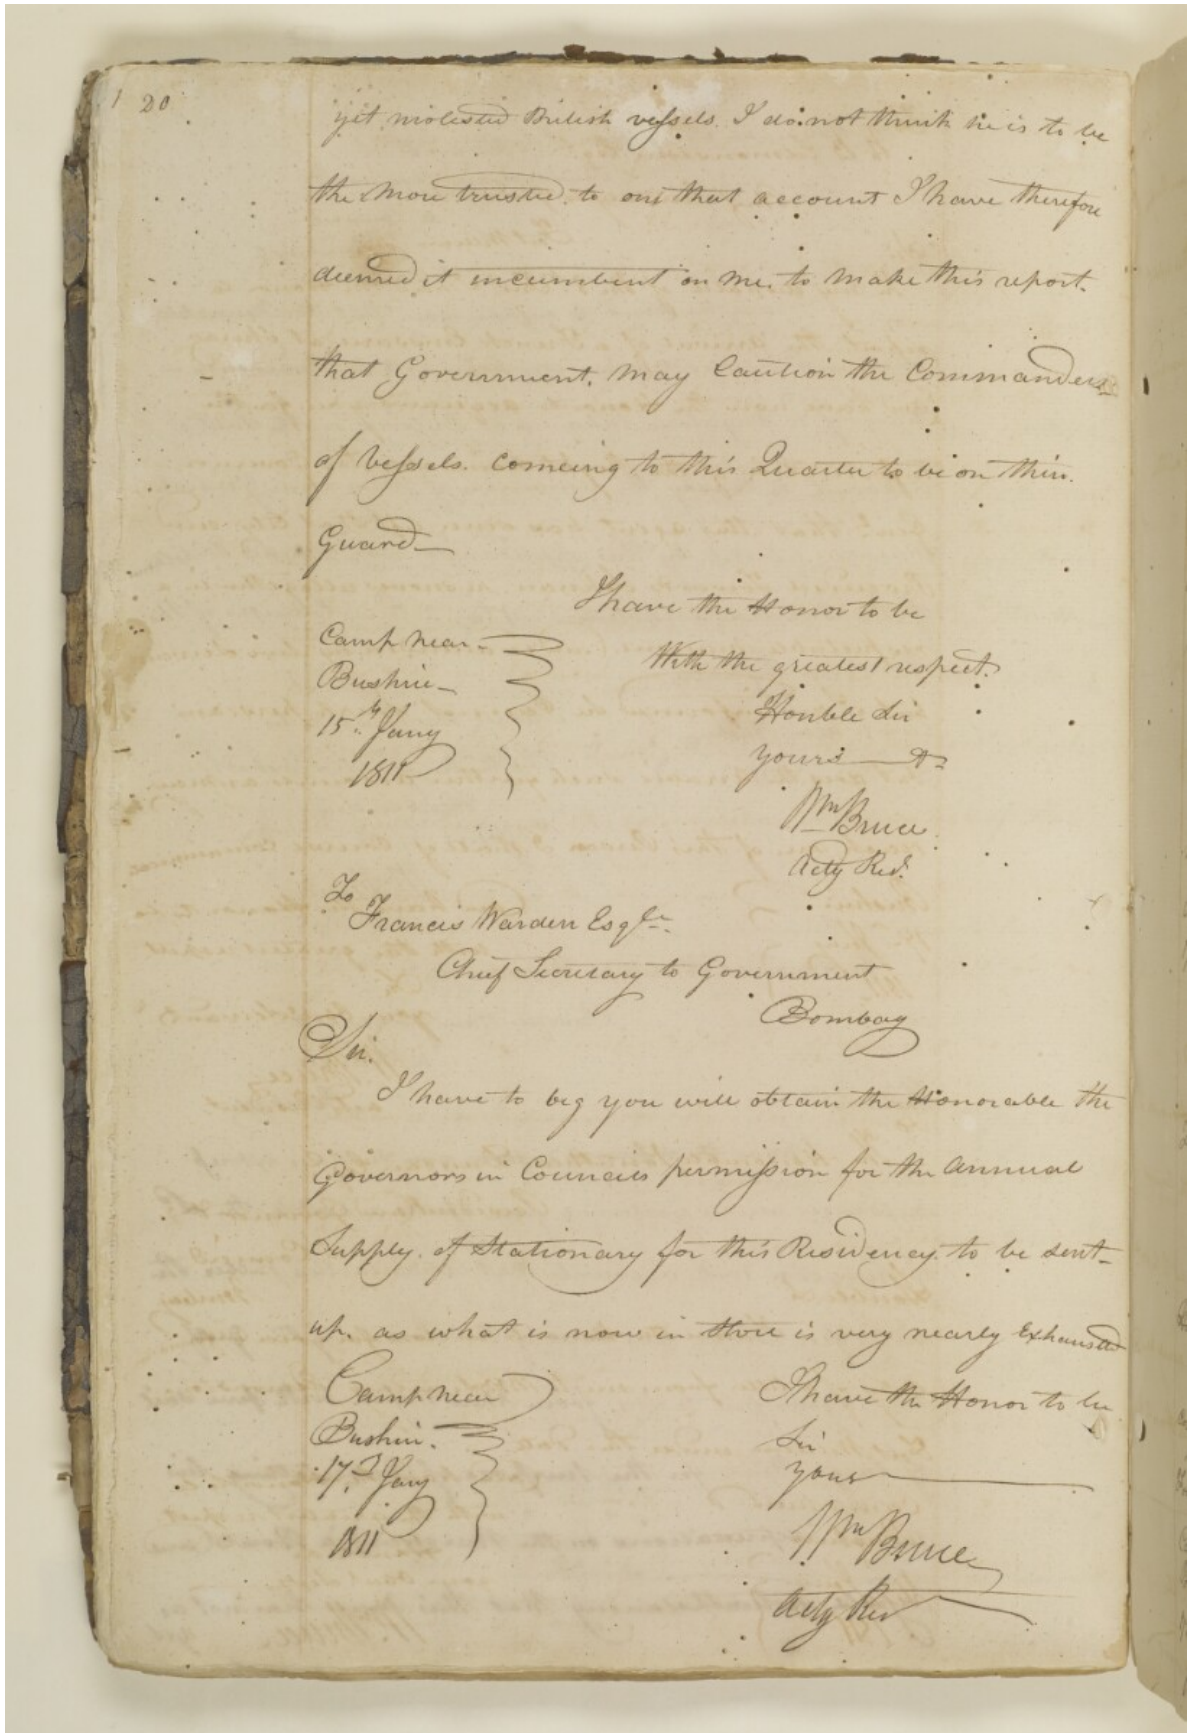 1 20
yet molested British vessels. I do not think he is to be
the more trusted to on that account I have therefore
deemed it incumbent on me, to make this report.
that Government, may Caution the Commanders
of Vessels. Comeing to this Quarter to be on thin.
Guard —
I have the Honor to be
Camp near -
With the greatest respect.
Bushire -
Honble Sir
15th Jany
yours — &c
1811
Wm Bruce
Actg Resd.
To
Francis Warden Esqre.
Chief Secretary to Government
Bombay
Sir.
I have to beg you will obtain the Honorable the
Governors in Councils permission for the Annual
Supply. of Stationary for this Residency. to be sent -
up. as what is now in store is very nearly Exhausted
Camp near
I have the Honor to be
Bushire.
Sir
17 Jany
yours —
1811
Wm Bruce
Actg Res